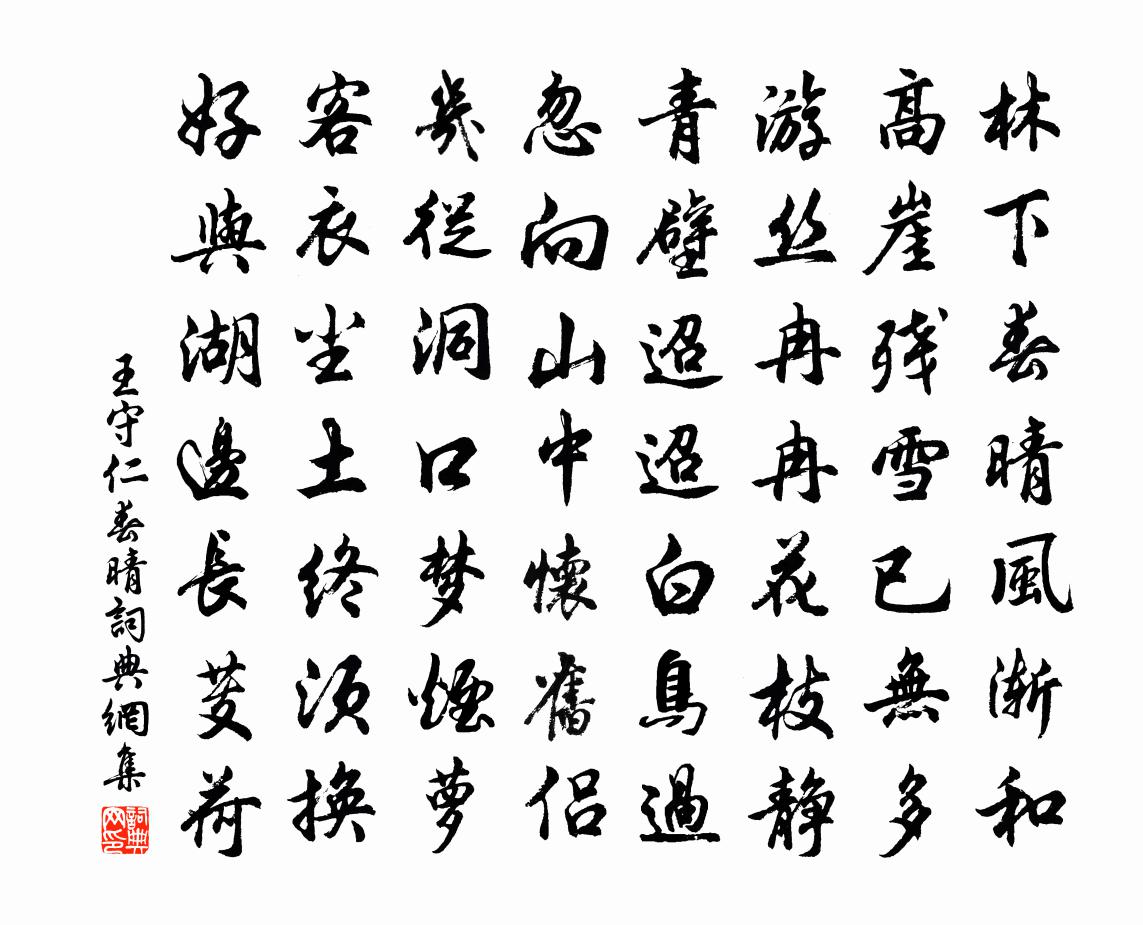 林下春晴風漸和
高崖残雪已無多
游丝冉冉花枝静
青壁迢迢白鳥過
忽向山中懷舊侣
幾從洞口梦煙萝
客衣尘土终须换
好與湖邊長芰荷
王守仁春晴詞典網集
詞典網印